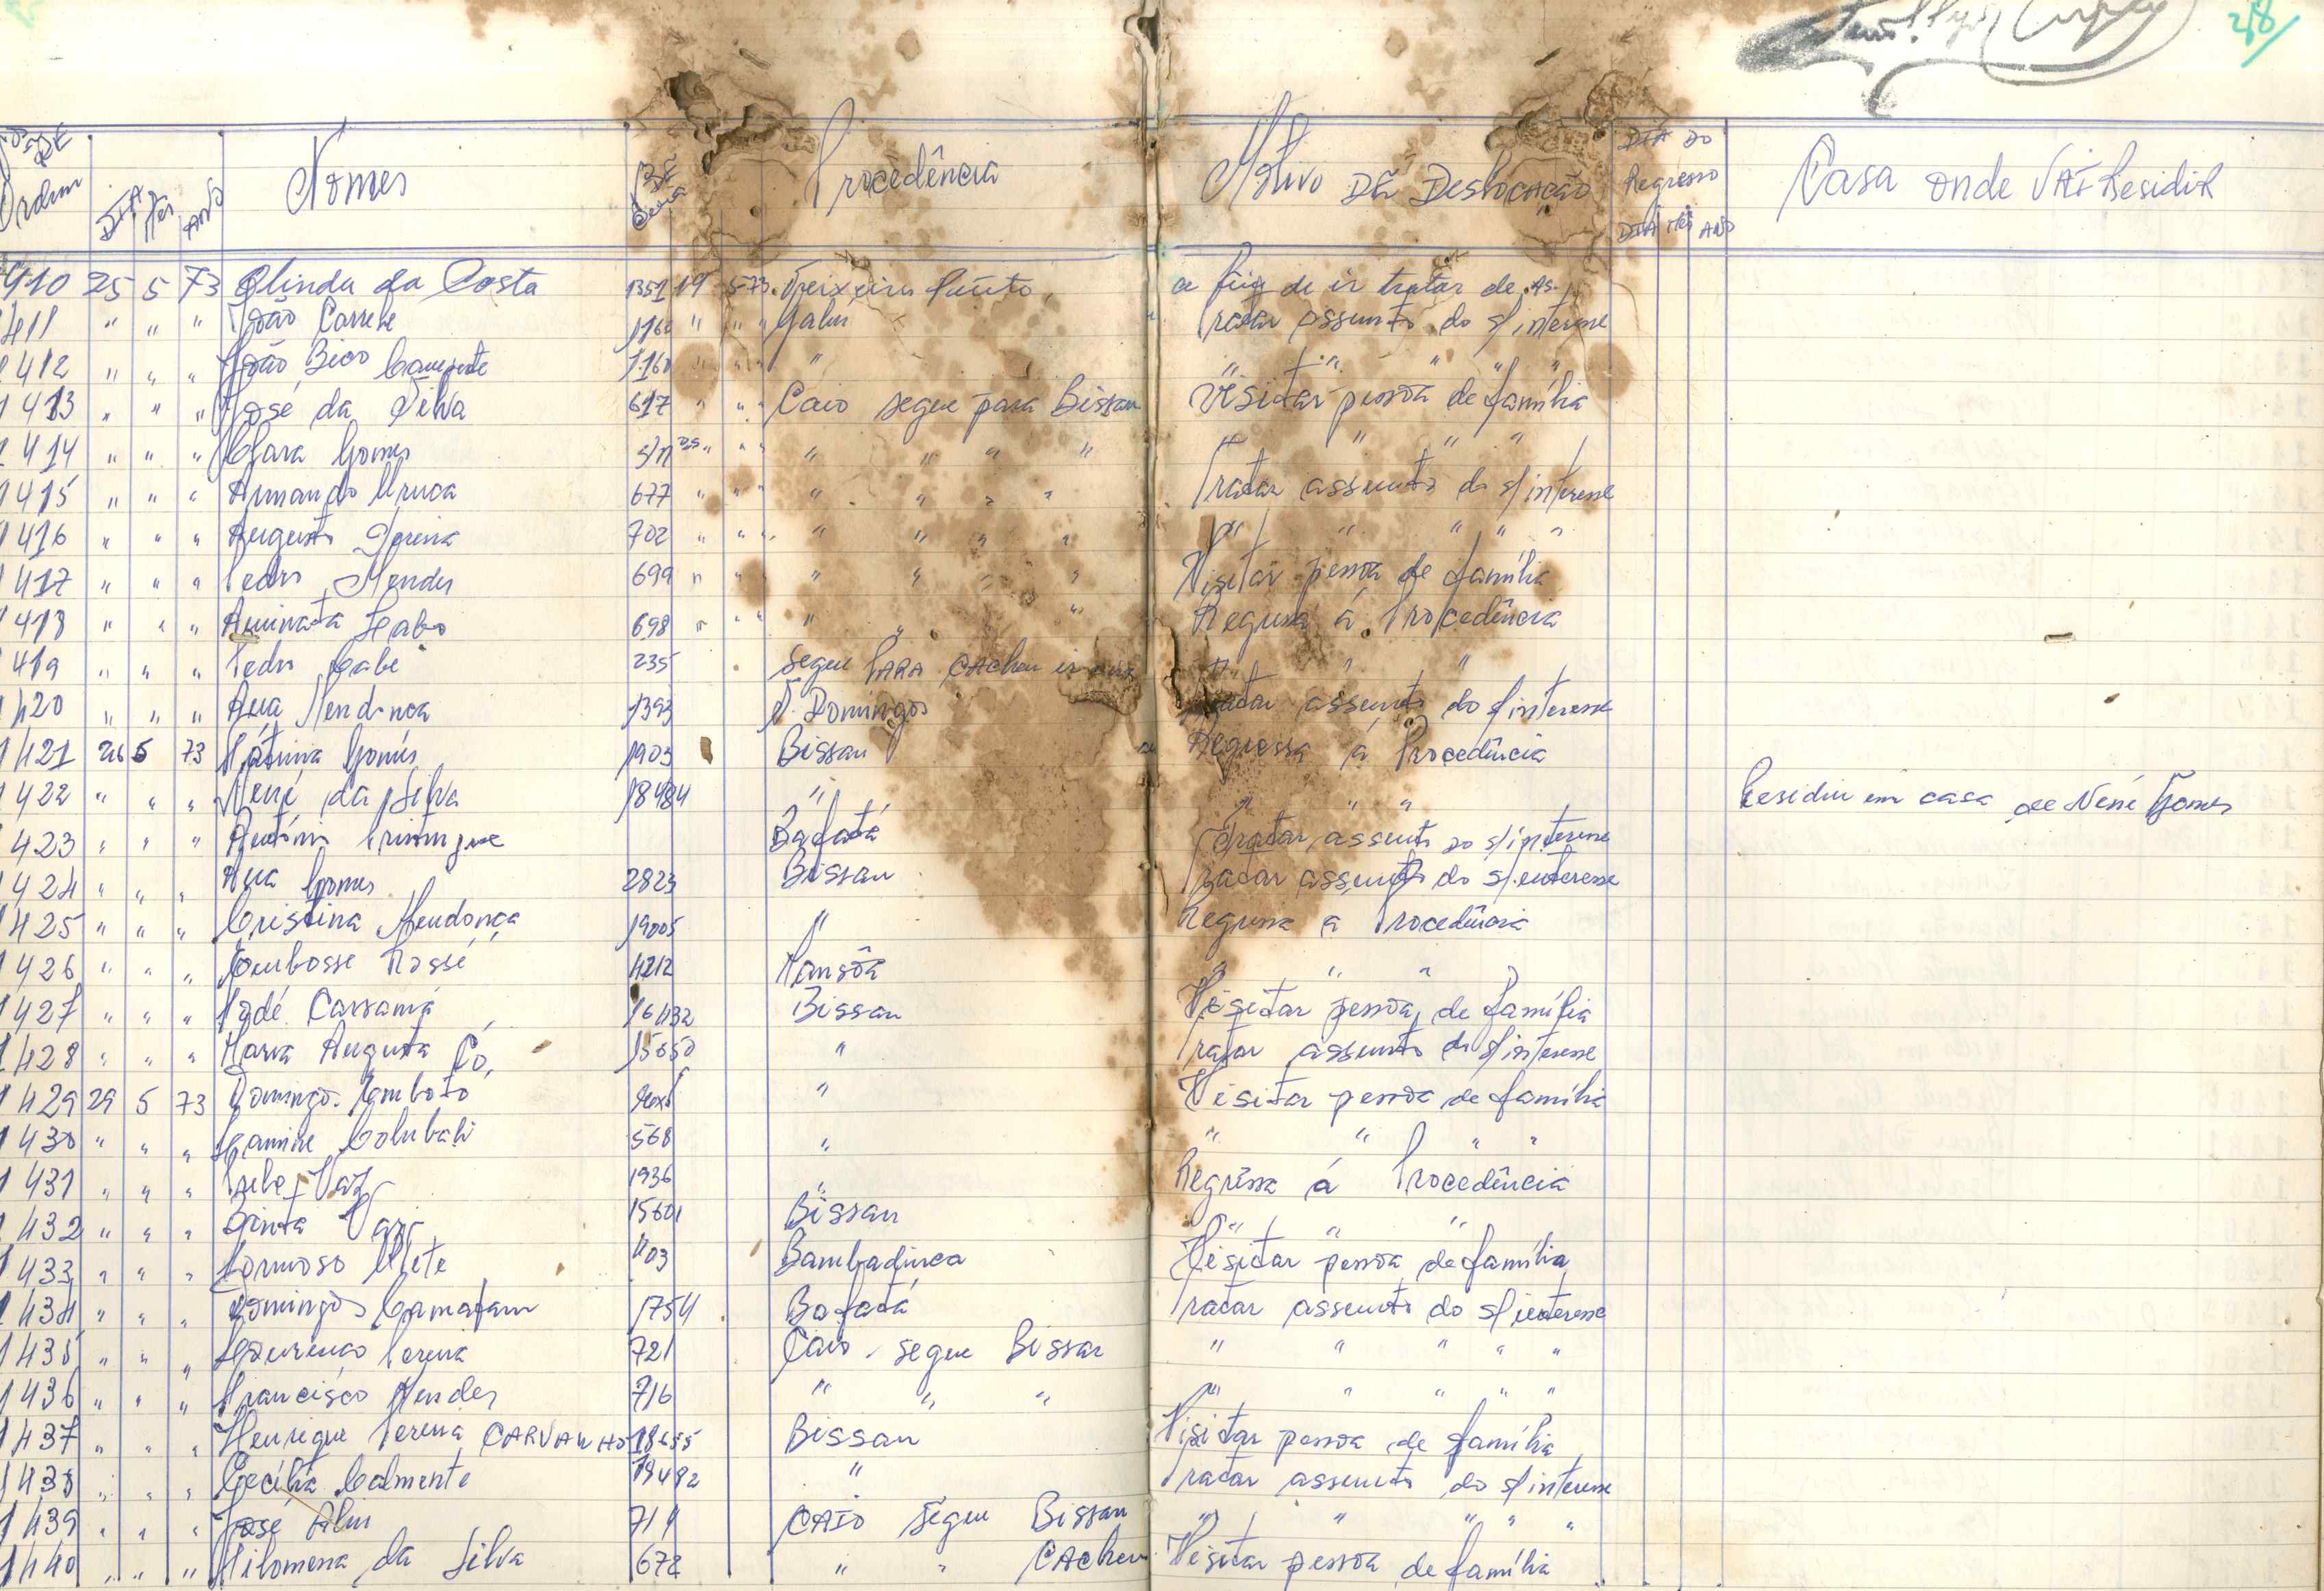 28/
Nº DE Ordem DIA Mês ANO Nomes Nº DE Guia Procedência Motivo DA DESLOCAÇÃO DIA DO Regresso DIA Mês ANO Casa onde VAI Residir
1410 25 5 73 Olinda da Costa 1351 19 5 73 Teixeira Pinto a fim de ir tratar de As.
1411 " " " João Correhe 1160 " " " Jalur Tratar assunto do s/ interesse
1412 " " " João Bico 1160 " " " " " " " " "
1413 " " " José da Silva 617 " " " Caio segue para Bissau Visitar pessoa de família
1414 " " " Clara Gomes S/n 25 " " " " " " " " " "
1415 " " " Armando 677 " " " " " " " Tratar assunto do s/ interesse
1416 " " " Augusto Pereira 702 " " " " " " " " " " " "
1417 " " " Pedro Mendes 699 " " " " " " " Visitar pessoa de família
1418 " " " Aminata 698 " " " " " " " Regressa á Procedência
1419 " " " Pedro Cabe 235 Segue PARA CACheu " " "
1420 " " " Ana Mendonça 1393 S. Domingos Tratar assunto do s/ interesse
1421 26 5 73 Fátima Gomes 1903 Bissau Regressa á Procedência
1422 " " " Nené da Silva 18484 " " " " Residiu em casa de Nené Gomes
1423 " " " António Bafatá Tratar assunto do s/ interesse
1424 " " " Ana Gomes 2823 Bissau Tratar assunto do s/ enteresse
1425 " " " Cristina Mendonça 19005 " Regressa a Procedência
1426 " " " Embosse 4212 Mansôa " " "
1427 " " " Cassamá 16432 Bissau Visitar pessoa de família
1428 " " " Maria Augusta Có, 15650 " Tratar assunto do s/ interesse
1429 29 5 73 Domingos Emboto " Visitar pessoa de família
1430 " " " Lamine Colubali 568 " " " " "
1431 " " " Vaz 1936 " Regressa á Procedência
1432 " " " Binta Vaz 15601 Bissau " " "
1433 " " " Formoso Mete 403 Bambadinca Visitar pessoa de família
1434 " " " Domingos Camafam 1754 Bafatá Tratar assunto do s/ interesse
1435 " " " Lourenço Pereira 721 Caio - segue Bissau " " " " "
1436 " " " Francisco Mendes 716 " " " " " " " "
1437 " " " Henrique Pereira CARVALHO 18655 Bissau Visitar pessoa de família
1438 " " " Cecília Calmente 19482 " Tratar assunto do s/ interesse
1439 " " " José 714 CAIO segue Bissau " " " " "
1440 " " " Filomena da Silva 672 " " CACheu Visitar pessoa de família